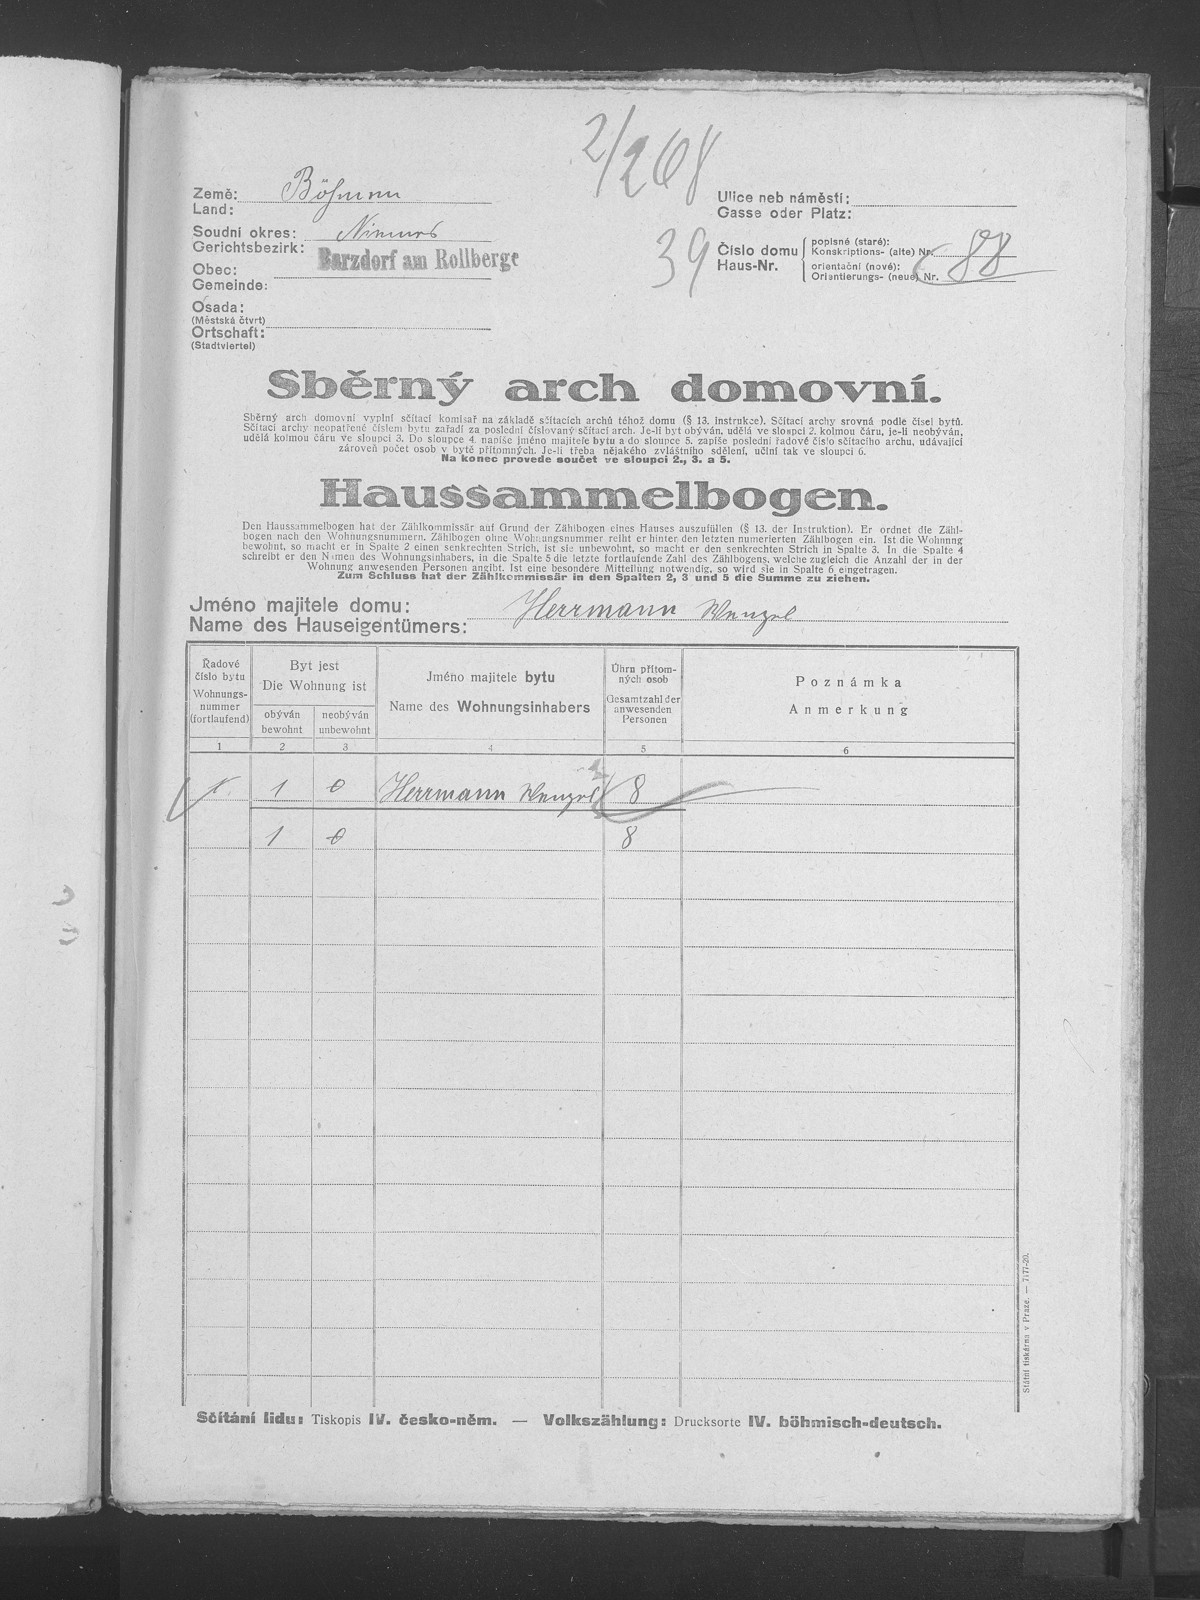 2/268
Země: Böhmen
Land:
Soudní okres: Niemes
Gerichtsbezirk:
Barzdorf am Rollberge
Obec:
Gemeinde:
Osada:
(Městská čtvrt)
Ortschaft:
(Stadtviertel)
Ulice neb náměstí:
Gasse oder Platz:
39
Číslo domu
Haus-Nr.
popisné (staré):
Konskriptions- (alte) Nr. 88
orientační (nové):
Orientierungs- (neue) Nr.
Sběrný arch domovní.
Sběrný arch domovní vyplní sčítací komisař na základě sčítacích archů téhož domu (§ 13. instrukce). Sčítací archy srovná podle čísel bytů.
Sčítací archy neopatřené číslem bytu zařadí za poslední číslovaný sčítací arch. Je-li byt obýván, udělá ve sloupci 2. kolmou čáru, je-li neobýván,
udělá kolmou čáru ve sloupci 3. Do sloupce 4. napíše jméno majitele bytu a do sloupce 5. zapíše poslední řadové číslo sčítacího archu, udávající
zároveň počet osob v bytě přítomných. Je-li třeba nějakého zvláštního sdělení, učiní tak ve sloupci 6.
Na konec provede součet ve sloupci 2., 3. a 5.
Haussammelbogen.
Den Haussammelbogen hat der Zählkommissär auf Grund der Zählbogen eines Hauses auszufüllen (§ 13. der Instruktion). Er ordnet die Zähl-
bogen nach den Wohnungsnummern. Zählbogen ohne Wohnungsnummer reiht er hinter den letzten numerierten Zählbogen ein. Ist die Wohnung
bewohnt, so macht er in Spalte 2 einen senkrechten Strich, ist sie unbewohnt, so macht er den senkrechten Strich in Spalte 3. In die Spalte 4
schreibt er den Namen des Wohnungsinhabers, in die Spalte 5 die letzte fortlaufende Zahl des Zählbogens, welche zugleich die Anzahl der in der
Wohnung anwesenden Personen angibt. Ist eine besondere Mitteilung notwendig, so wird sie in Spalte 6 eingetragen.
Zum Schluss hat der Zählkommissär in den Spalten 2, 3 und 5 die Summe zu ziehen.
Jméno majitele domu: Herrmann Wenzel
Name des Hauseigentümers:
Řadové
číslo bytu
Wohnungs-
nummer
(fortlaufend)
Byt jest
Die Wohnung ist
obýván
bewohnt
neobýván
unbewohnt
Jméno majitele bytu
Name des Wohnungsinhabers
Úhrn přítom-
ných osob
Gesamtzahl der
anwesenden
Personen
Poznámka
Anmerkung
1 2 3 4 5 6
1 1 0 Herrmann Wenzel 8
1 0 8
Státní tiskárna v Praze. — 7177-20.
Sčítání lidu: Tiskopis IV. česko-něm. — Volkszählung: Drucksorte IV. böhmisch-deutsch.